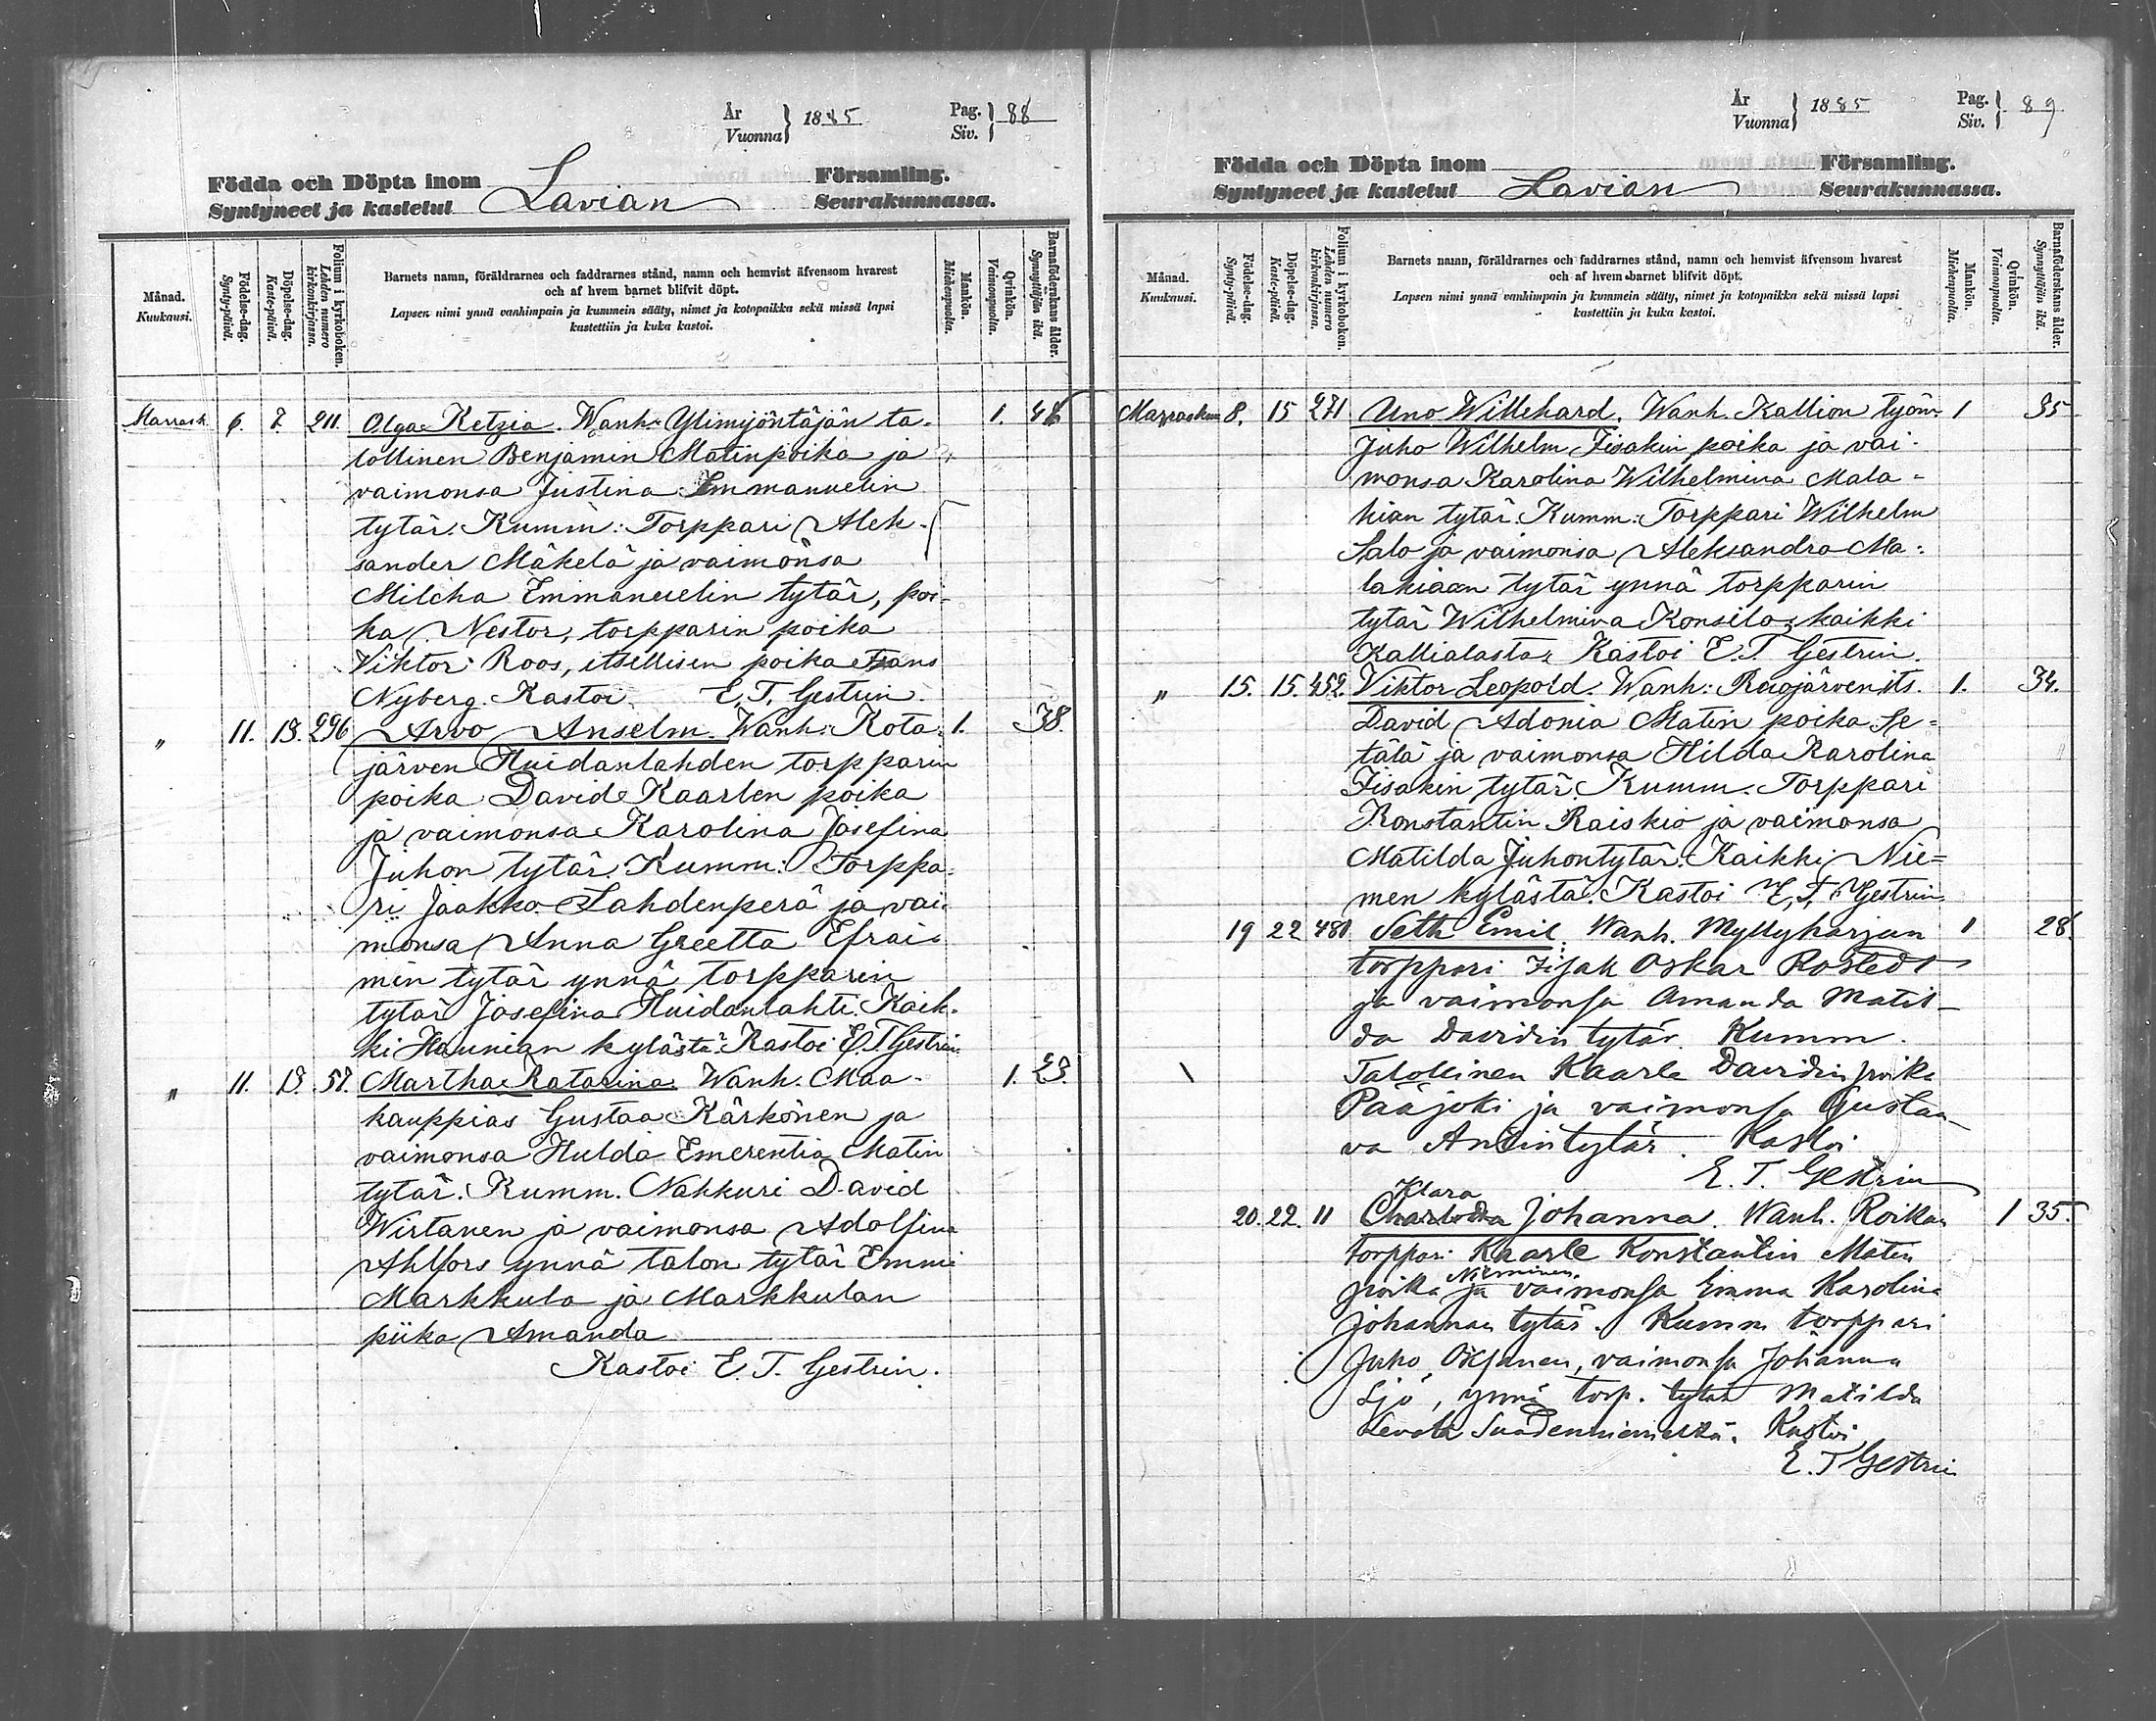 År
Vuonna
1885
Pag.
Siv.
88
Födda och Döpta inom
Syntyneet ja kastetut
Lavian
Församling.
Seurakunnassa.
Månad.
Kuukausi.
Födelse-dag.
Synty-päivä.
Döpelse-dag.
Kaste-päivä.
Folium i kyrkoboken.
Lehden numero kirkonkirjassa.
Barnets namn, föräldrarnes och faddrarnes stånd, namn och hemvist äfvensom hvarest
och af hvem barnet blifvit döpt.
Lapsen nimi ynnä vanhimpain ja kummein sääty, nimet ja kotopaikka sekä missä lapsi
kastettiin ja kuka kastoi.
Mankön.
Miehenpuolta.
Qvinkön.
Vaimonpuolta.
Barnaföderskans ålder.
Synnyttäjän ikä.
Marrask. 6. 7. 211. Olga Ketzia. Wanh: Ylimyöntäjän ta- 1.
lollinen Benjamin Matinpoika ja
vaimonsa Justina Emmanuelin
tytär. Kumm: Torppari Alek-
sander Mäkelä ja vaimonsa
Milcha Emmanuelin tytär, poi-
ka Nestor, torpparin poika
Viktor Roos, itsellisen poika Frans
Nyberg. Kastoi E. T. Gestrin.
" 11. 296 Arvo Anselm. Wanh: Kota- 1. 38.
järven Huidanlahden torpparin
poika David Kaarlen poika
ja vaimonsa Karolina Josefina
Juhon tytär. Kumm: Torppa-
ri Jaakko Lahdenperä ja vai-
monsa Anna Greetta Efrai-
min tytär ynnä torpparin
tytär Josefina Huidanlahti. Kaik-
ki Haunian kylästä. Kastoi E. T. Gestrin.
" 11. Martha Katarina. Wanh. Maa- 1. 23.
kauppias Gustaa Kärkönen ja
vaimonsa Hulda Emerentia Matin
tytär. Kumm. Nahkuri David
Wirtanen ja vaimonsa Adolfina
Ahlfors ynnä talon tytär Emmi
Markkula ja Markkulan
piika Amanda
Kastoi E. T. Gestrin.
År
Vuonna
1885
Pag.
Siv.
89
Födda och Döpta inom
Syntyneet ja kastetut
Lavian
Församling.
Seurakunnassa.
Månad.
Kuukausi.
Födelse-dag.
Synty-päivä.
Döpelse-dag.
Kaste-päivä.
Folium i kyrkoboken.
Lehden numero kirkonkirjassa.
Barnets namn, föräldrarnes och faddrarnes stånd, namn och hemvist äfvensom hvarest
och af hvem barnet blifvit döpt.
Lapsen nimi ynnä vanhimpain ja kummein sääty, nimet ja kotopaikka sekä missä lapsi
kastettiin ja kuka kastoi.
Mankön.
Miehenpuolta.
Qvinkön.
Vaimonpuolta.
Barnaföderskans ålder.
Synnyttäjän ikä.
Marraskuu 8. 15 271 Uno Willehard. Wanh. Kallion työm. 1 35
Juho Wilhelm Iisakin poika ja vai-
monsa Karolina Wilhelmina Mala-
kian tytär. Kumm: Torppari Wilhelm
Salo ja vaimonsa Aleksandra Ma-
lakiaan tytär ynnä torpparin
tytär Wilhelmina Konsila, kaikki
Kallialasta. Kastoi E. T. Gestrin.
" 15. 15. 452. Viktor Leopold. Wanh: Riojärven its. 1. 34.
David Adonia Matin poika Se-
tälä ja vaimonsa Hilda Karolina
Iisakin tytär. Kumm. Torppari
Konstantin Raiskio ja vaimonsa
Matilda Juhontytär. Kaikki Nie=
men kylästä. Kastoi E. T. Gestrin.
19 22 480 Seth Emil. Wanh. Myllyharjun 1 28.
torppari Iisak Oskar Rostedt
ja vaimonsa Amanda Matil-
da Davidin tytär. Kumm.
Talollinen Kaarle Davidin poika
Pääjoki ja vaimonsa Gustaa-
va Antintytär. Kastoi
E. T. Gestrin
Klara
20. 22. 11 Charlotta Johanna. Wanh. Roikan 1 35.
torppari Kaarle Konstantin Matin
Nieminen
poika ja vaimonsa Emma Karolina
Johannan tytär. Kumm torppari
Juho Oksanen, vaimonsa Johanna
Sjö, ynnä torp. tytär Matilda
Suodenniemeltä. Kastoi
E. T Gestrin